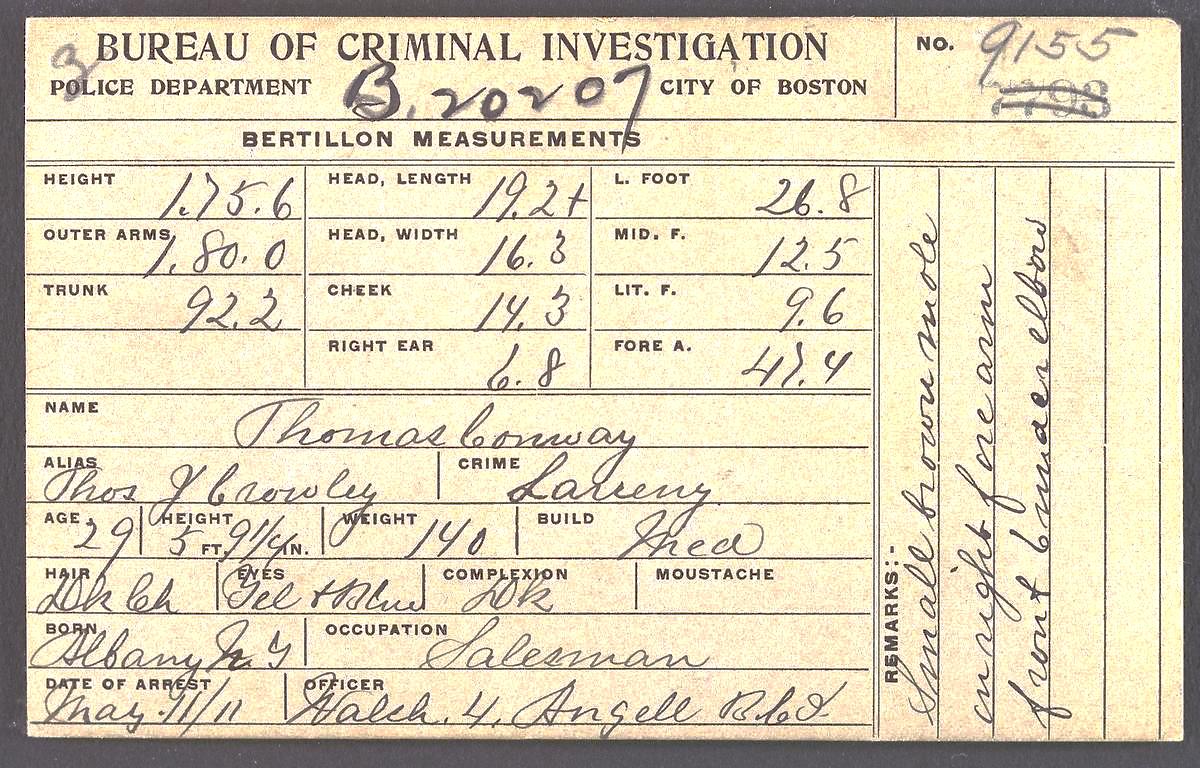 3 BUREAU OF CRIMINAL INVESTIGATION
POLICE DEPARTMENT B. 20207 CITY OF BOSTON
NO. 9155
BERTILLON MEASUREMENTS
HEIGHT 1.75.6 HEAD, LENGTH 19.2+ L. FOOT 26.8
OUTER ARMS 1.80.0 HEAD, WIDTH 16.3 MID. F. 12.5
TRUNK 92.2 CHEEK 14.3 LIT. F. 9.6
RIGHT EAR 6.8 FORE A. 47.4
NAME Thomas Conway
ALIAS Thos J Crowley CRIME Larceny
AGE 29 HEIGHT 5 FT. 9 1/4 IN. WEIGHT 140 BUILD Med
HAIR Dk Ch EYES Yel + Blue COMPLEXION Dk MOUSTACHE
BORN Albany N.Y OCCUPATION Salesman
DATE OF ARREST May 11/11 OFFICER Walsh. 4. Angell B.C.I.
REMARKS:-
Small brown mole
on right fore arm
front 6 under elbow